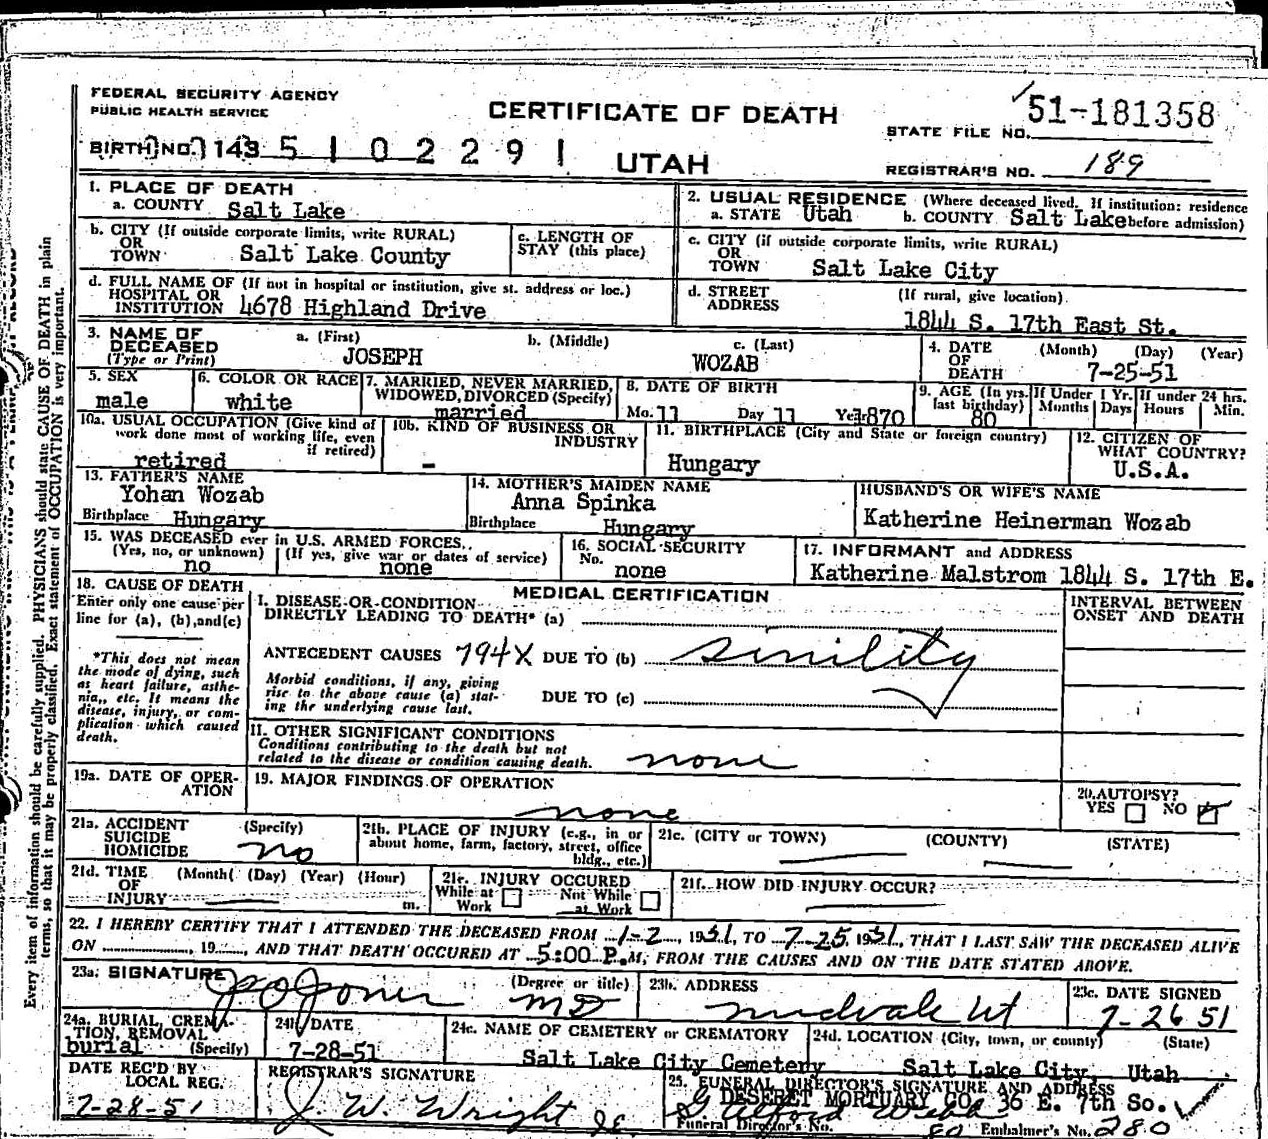 FEDERAL SECURITY AGENCY
PUBLIC HEALTH SERVICE
CERTIFICATE OF DEATH
UTAH
STATE FILE NO. 51-181358
BIRTH NO. 143 5 1 0 2 2 9 1
REGISTRAR'S NO. 189
1. PLACE OF DEATH
a. COUNTY Salt Lake
2. USUAL RESIDENCE (Where deceased lived. If institution: residence before admission)
a. STATE Utah b. COUNTY Salt Lake
b. CITY (If outside corporate limits, write RURAL)
OR
TOWN Salt Lake County
c. LENGTH OF
STAY (this place)
c. CITY (if outside corporate limits, write RURAL)
OR
TOWN Salt Lake City
d. FULL NAME OF (If not in hospital or institution, give st. address or loc.)
HOSPITAL OR
INSTITUTION 4678 Highland Drive
d. STREET (If rural, give location)
ADDRESS 1844 S. 17th East St.
3. NAME OF
DECEASED
(Type or Print)
a. (First) b. (Middle) c. (Last)
JOSEPH WOZAB
4. DATE (Month) (Day) (Year)
OF
DEATH 7-25-51
5. SEX
male
6. COLOR OR RACE
white
7. MARRIED, NEVER MARRIED,
WIDOWED, DIVORCED (Specify)
married
8. DATE OF BIRTH
Mo. 11 Day 11 Year 1870
9. AGE (In yrs.
last birthday)
80
If Under 1 Yr.
Months Days
If under 24 hrs.
Hours Min.
10a. USUAL OCCUPATION (Give kind of
work done most of working life, even
if retired)
retired
10b. KIND OF BUSINESS OR
INDUSTRY
-
11. BIRTHPLACE (City and State or foreign country)
Hungary
12. CITIZEN OF
WHAT COUNTRY?
U.S.A.
13. FATHER'S NAME
Yohan Wozab
Birthplace Hungary
14. MOTHER'S MAIDEN NAME
Anna Spinka
Birthplace Hungary
HUSBAND'S OR WIFE'S NAME
Katherine Heinerman Wozab
15. WAS DECEASED ever in U.S. ARMED FORCES..
(Yes, no, or unknown) (If yes, give war or dates of service)
no none
16. SOCIAL SECURITY
No.
none
17. INFORMANT and ADDRESS
Katherine Malstrom 1844 S. 17th E.
18. CAUSE OF DEATH
Enter only one cause per
line for (a), (b), and (c)
*This does not mean
the mode of dying, such
as heart failure, asthe-
nia, etc. It means the
disease, injury, or com-
plication which caused
death.
MEDICAL CERTIFICATION
INTERVAL BETWEEN
ONSET AND DEATH
I. DISEASE OR CONDITION
DIRECTLY LEADING TO DEATH* (a)
ANTECEDENT CAUSES 794X DUE TO (b) sinility
Morbid conditions, if any, giving
rise to the above cause (a) stat-
ing the underlying cause last.
DUE TO (c)
II. OTHER SIGNIFICANT CONDITIONS
Conditions contributing to the death but not
related to the disease or condition causing death. none
19a. DATE OF OPER-
ATION
19. MAJOR FINDINGS OF OPERATION
none
20. AUTOPSY?
YES NO
21a. ACCIDENT (Specify)
SUICIDE
HOMICIDE no
21b. PLACE OF INJURY (e.g., in or
about home, farm, factory, street, office
bldg., etc.)
21c. (CITY or TOWN) (COUNTY) (STATE)
21d. TIME (Month) (Day) (Year) (Hour)
OF
INJURY m.
21e. INJURY OCCURED
While at
Work
Not While
at Work
21f. HOW DID INJURY OCCUR?
22. I HEREBY CERTIFY THAT I ATTENDED THE DECEASED FROM 1-2, 1951, TO 7-25, 1951, THAT I LAST SAW THE DECEASED ALIVE
ON , 19 , AND THAT DEATH OCCURED AT 5:00 P.M, FROM THE CAUSES AND ON THE DATE STATED ABOVE.
23a. SIGNATURE (Degree or title)
J O Jones MD
23b. ADDRESS
Midvale Ut
23c. DATE SIGNED
7-26 51
24a. BURIAL, CREMA-
TION, REMOVAL
burial (Specify)
24b. DATE
7-28-51
24c. NAME OF CEMETERY or CREMATORY
Salt Lake City Cemetery
24d. LOCATION (City, town, or county) (State)
Salt Lake City, Utah
DATE REC'D BY
LOCAL REG.
7-28-51
REGISTRAR'S SIGNATURE
J. W. Wright
25. FUNERAL DIRECTOR'S SIGNATURE AND ADDRESS
DESERET MORTUARY CO. 36 E. 7th So.
Funeral Director's No. 80 Embalmer's No. 280
Every item of information should be carefully supplied. PHYSICIANS should state CAUSE OF DEATH in plain
terms, so that it may be properly classified. Exact statement of OCCUPATION is very important.